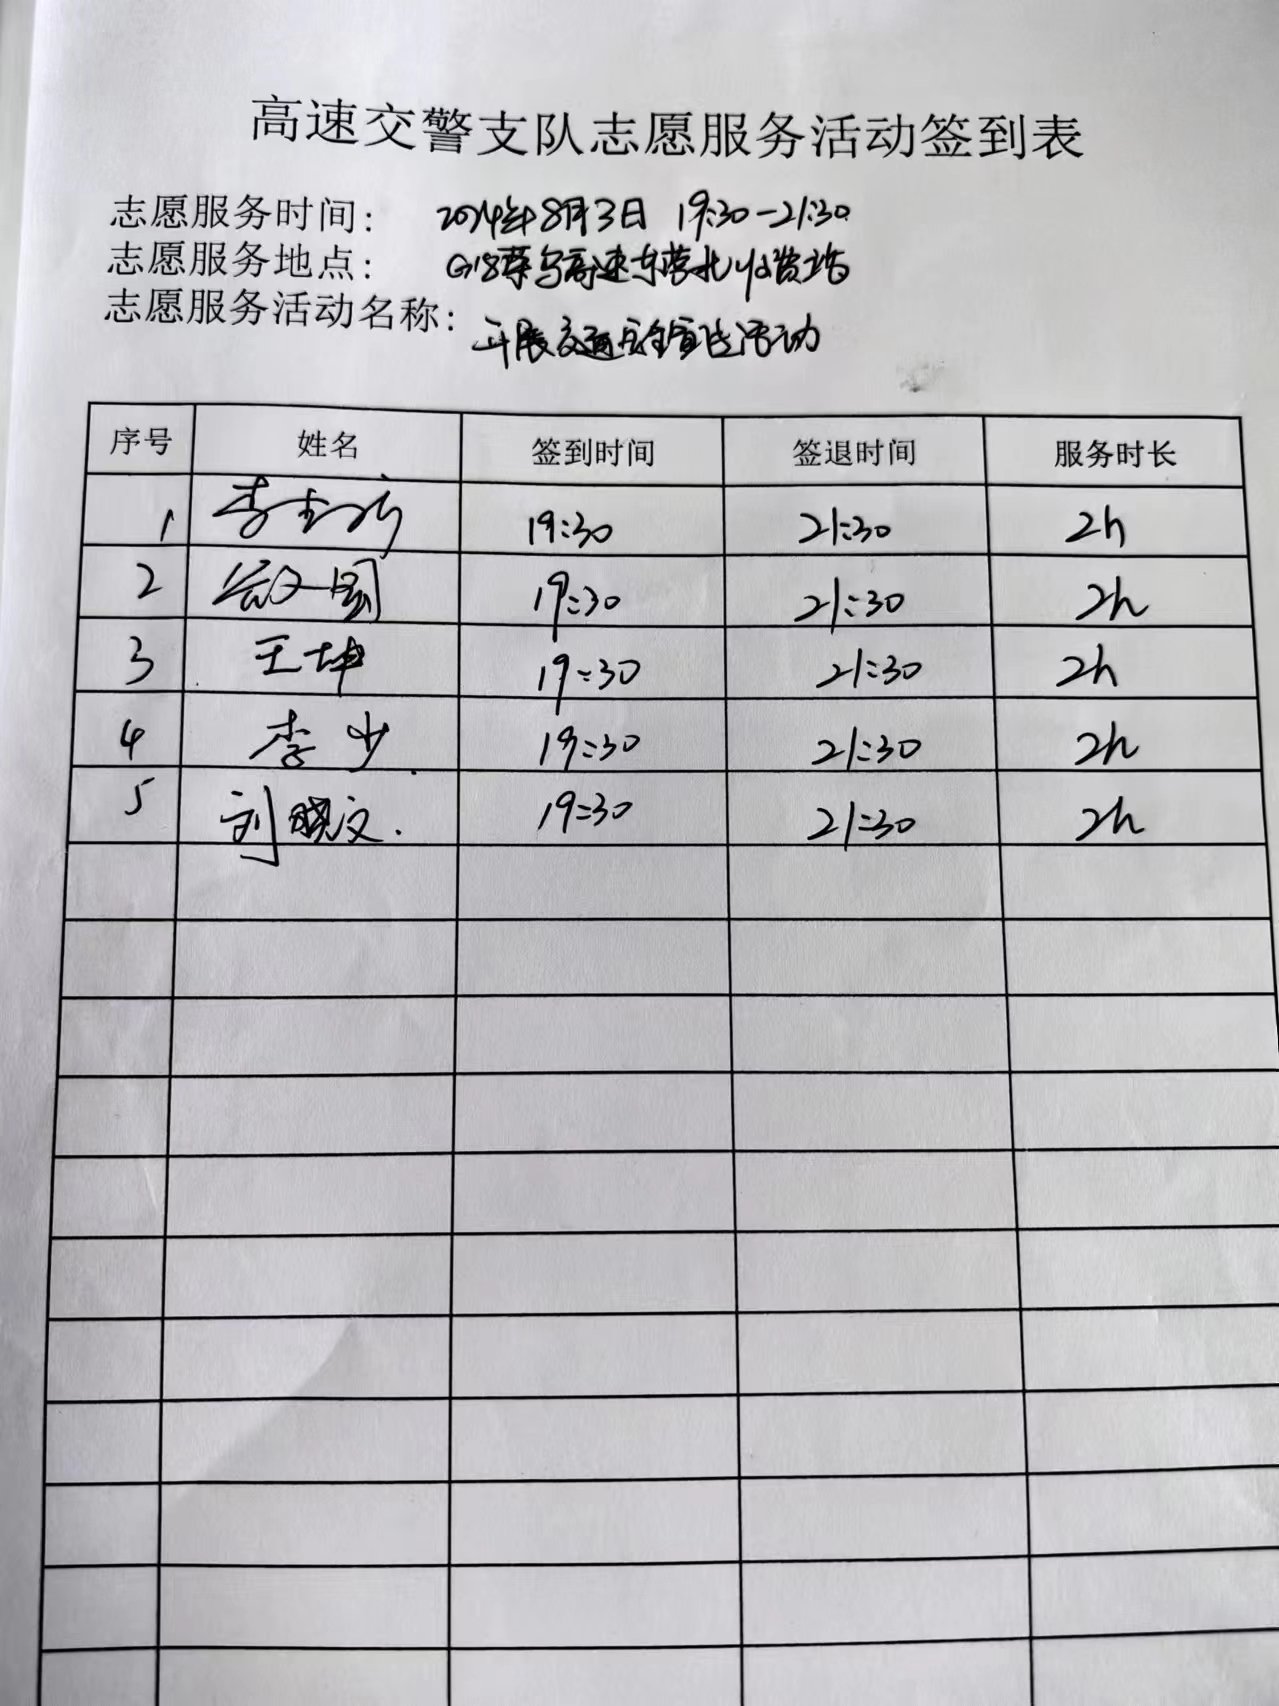 高速交警支队志愿服务活动签到表
志愿服务时间： 2024年8月3日 19:30-21:30
志愿服务地点： G18荣乌高速东营北收费站
志愿服务活动名称： 开展交通安全宣传活动
序号 姓名 签到时间 签退时间 服务时长
1 李 19:30 21:30 2h
2 19:30 21:30 2h
3 王坤 19:30 21:30 2h
4 李少 19:30 21:30 2h
5 刘晓文. 19:30 21:30 2h